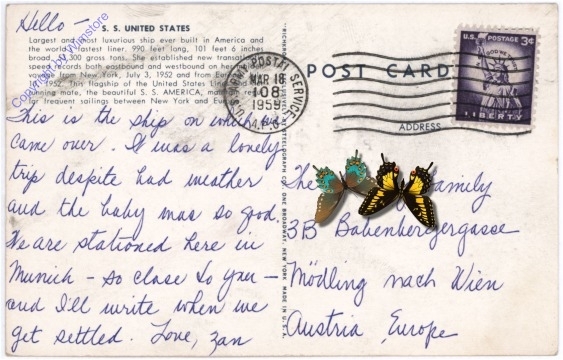 Hello –
S. S. UNITED STATES
Largest and most luxurious ship ever built in America and
the world's fastest liner. 990 feet long, 101 feet 6 inches
broad, 53,300 gross tons. She established new transatlantic
speed records both eastbound and westbound on her
voyage from New York, July 3, 1952 and from Europe
1952. This flagship of the United States Lines and
running mate, the beautiful S. S. AMERICA,
frequent sailings between New York and Europe
This is the ship on which we
came over. It was a lonely
trip despite bad weather
and the baby was so good.
We are stationed here in
Munich – so close to you –
and I'll write when we
get settled. Love, Zan
ARMY POSTAL SERVICE
MAR 18
108
1959
A.P.O.
POST CARD
ADDRESS
U.S. POSTAGE 3¢
IN GOD WE TRUST
LIBERTY
The Family
3B Babenbergergasse
Mödling nach Wien
Austria, Europe
NEW YORK MADE IN U.S.A.